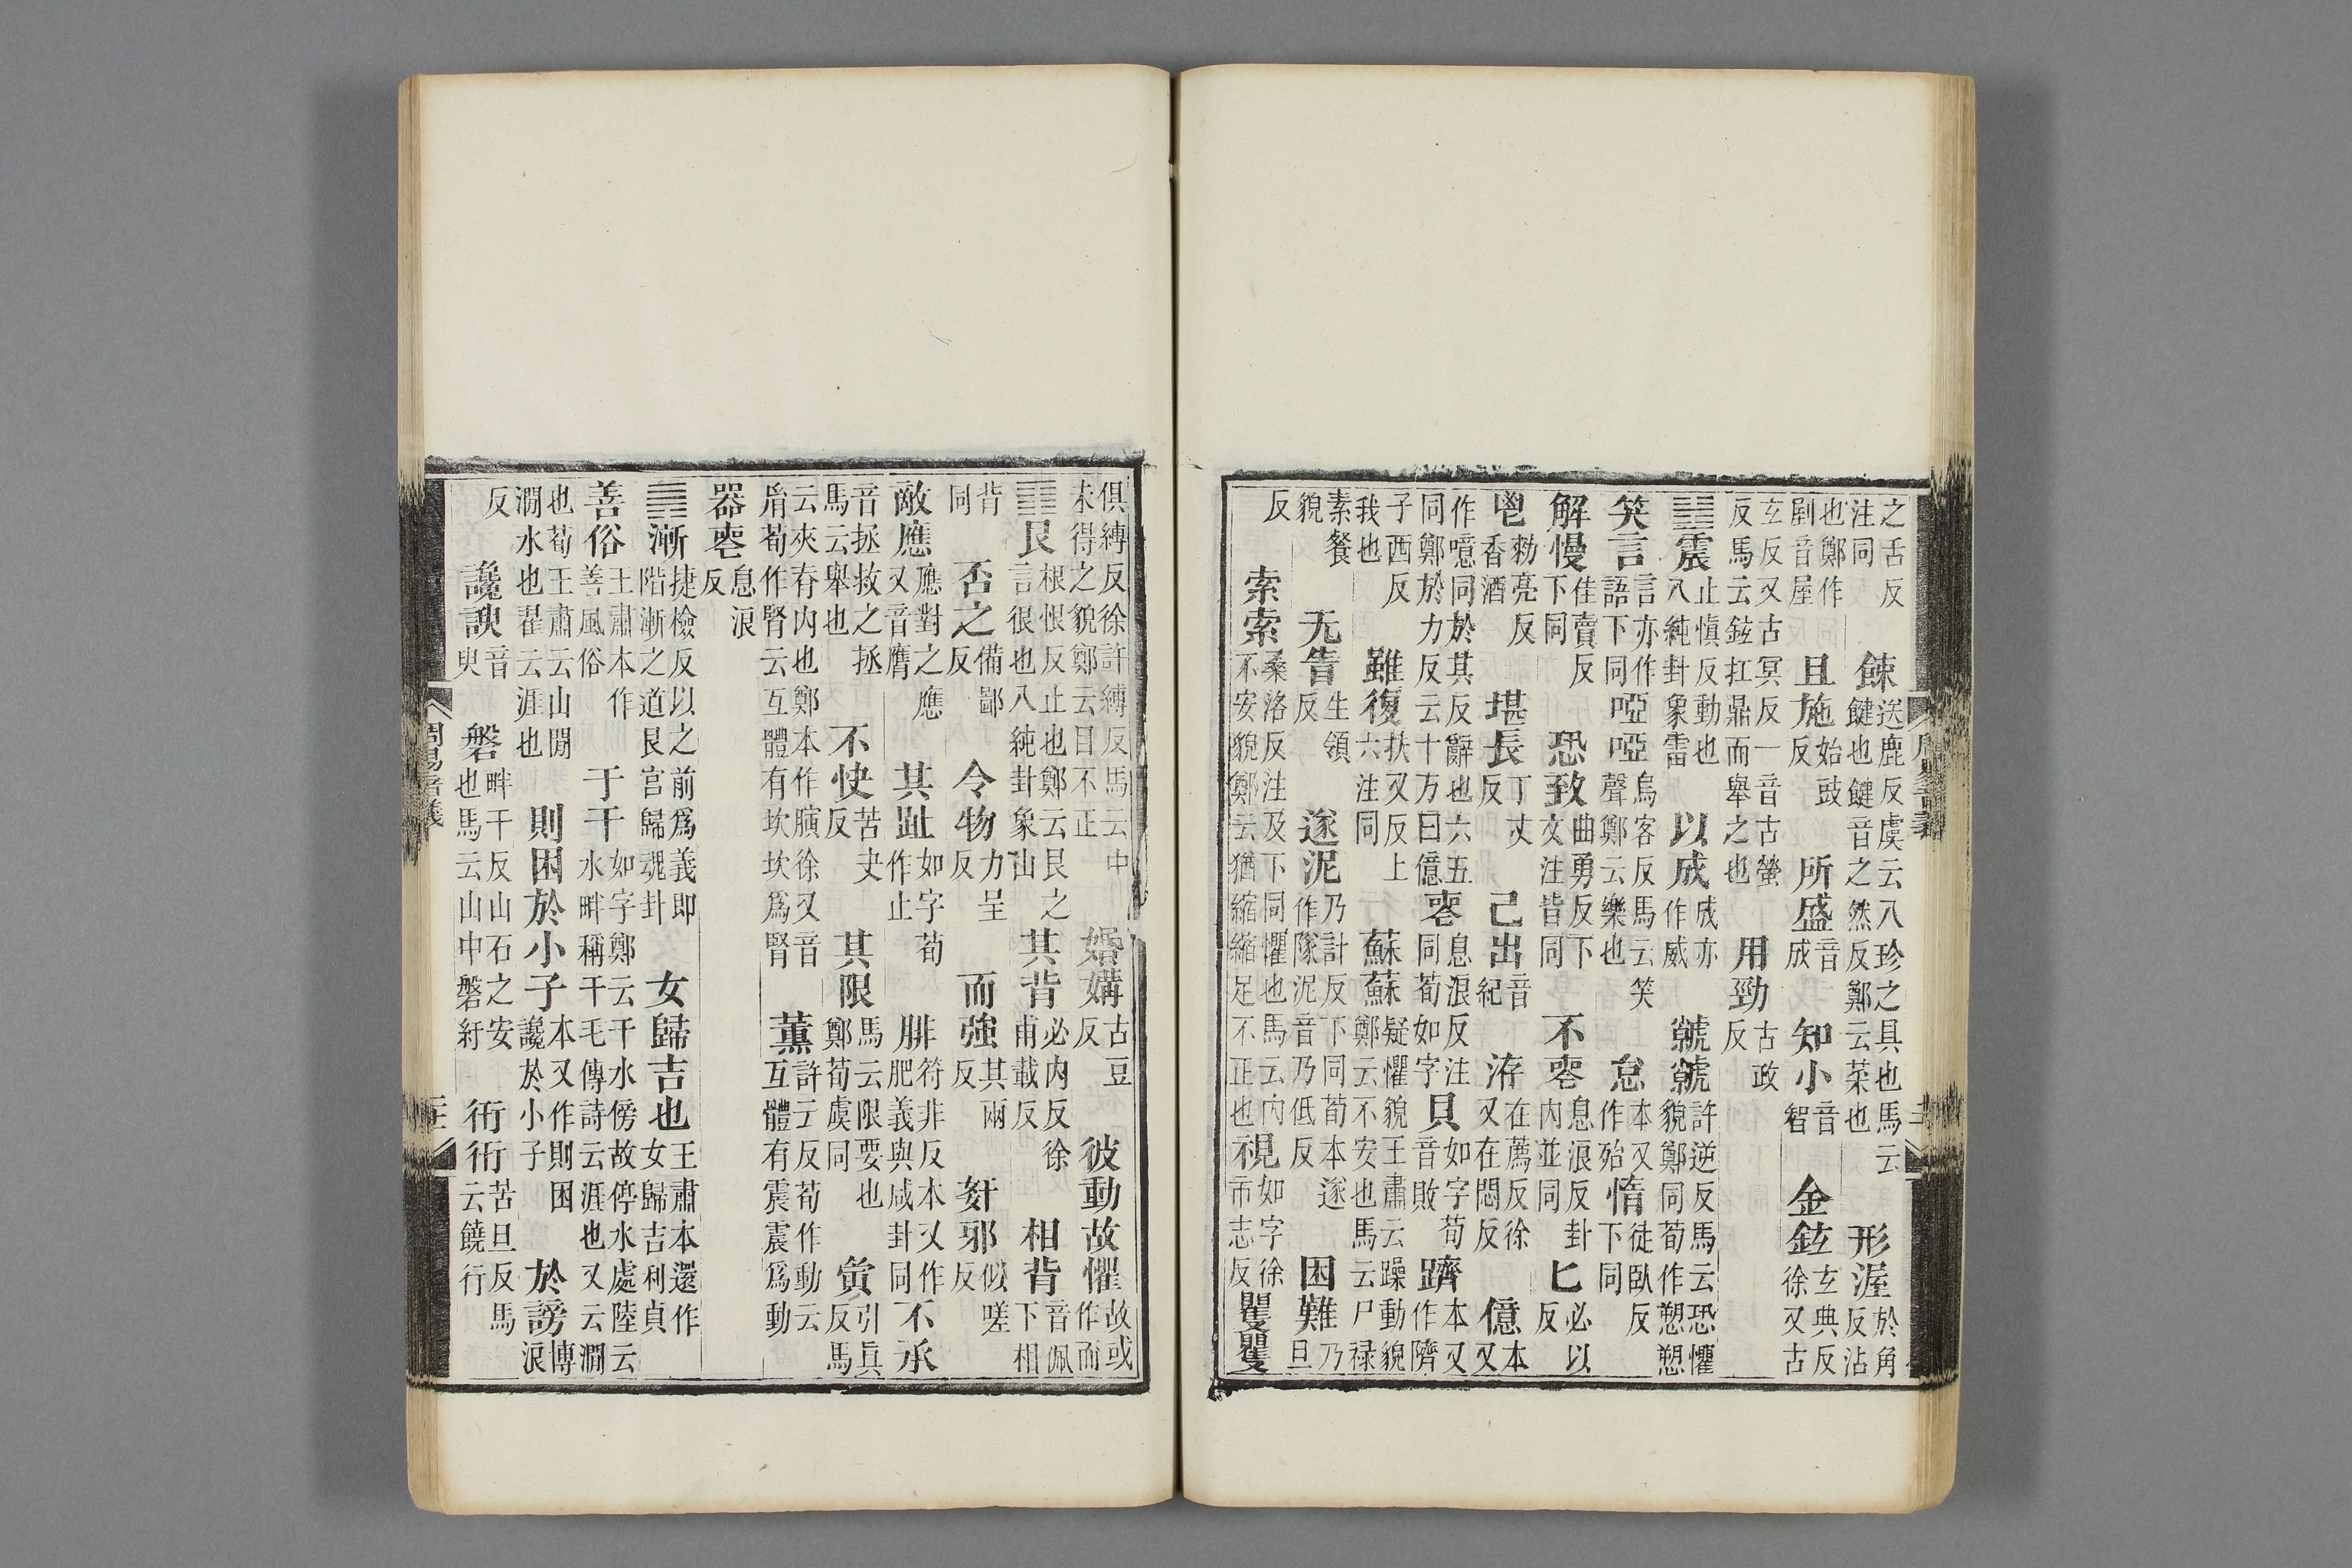 之舌反注同 餗送鹿反虞云八珍之具也馬云鍵也鍵音之然反鄭云菜也 形渥於角反沾
也鄭作剭音屋 且施始豉反 所盛音成 知小音智 金鉉玄典反徐又古
玄反又古冥反一音古螢反馬云鉉扛鼎而舉之也 用勁古政反
䷲震止愼反動也八純卦象雷 以成成亦作威 虩虩許逆反馬云恐懼貌鄭同荀作愬愬
笑言言亦作語下同 啞啞烏客反馬云笑聲鄭云樂也 怠本又作殆 惰徒臥反下同
解慢佳賣反下同 恐致曲勇反下文注皆同 不喪息浪反卦內並同 匕必以反
鬯勑亮反香酒 堪長丁丈反 己出音紀 洊在薦反徐又在悶反 億本又
作噫同於其反辭也六五同鄭於力反云十万曰億 喪息浪反注同荀如字 貝如字荀音敗 躋本又作隮
子西反我也 雖復扶又反上六注同 蘇蘇疑懼貌王肅云躁動貌鄭云不安也馬云尸祿
素餐貌 无眚生領反 遂泥乃計反下同荀本遂作隊泥音乃低反 困難乃旦
反 索索桑洛反注及下同懼也馬云內不安貌鄭云猶縮縮足不正也 視如字徐市志反 矍矍
俱縛反徐許縛反馬云中未得之貌鄭云目不正 婚媾古豆反 彼動故懼故或作而
䷳艮根恨反止也鄭云艮之言很也八純卦象山 其背必內反徐甫載反 相背音佩下相
背同 否之備鄙反 令物力呈反 而強其兩反 姧邪似嗟反
敵應應對之應又音膺 其趾如字荀作止 腓符非反本又作肥義與咸卦同 不承
音拯救之拯馬云舉也 不快苦夬反 其限馬云限要也鄭荀虞同 夤引眞反馬
云夾脊內也鄭本作䐜徐又音胤荀作腎云互體有坎坎爲腎 薰許云反荀作動云互體有震震爲動
器喪息浪反
䷴漸捷檢反以之前爲義即階漸之道艮宮歸魂卦 女歸吉也王肅本還作女歸吉利貞
善俗王肅本作善風俗 于干如字鄭云干水傍故停水處陸云水畔稱干毛傳詩云涯也又云澗
也荀王肅云山閒澗水也翟云涯也 則困於小子本又作則困讒於小子 於謗博浪
反 讒諛音臾 磐畔干反山石之安也馬云山中磐紆 衎衎苦旦反馬云饒行
周易音義